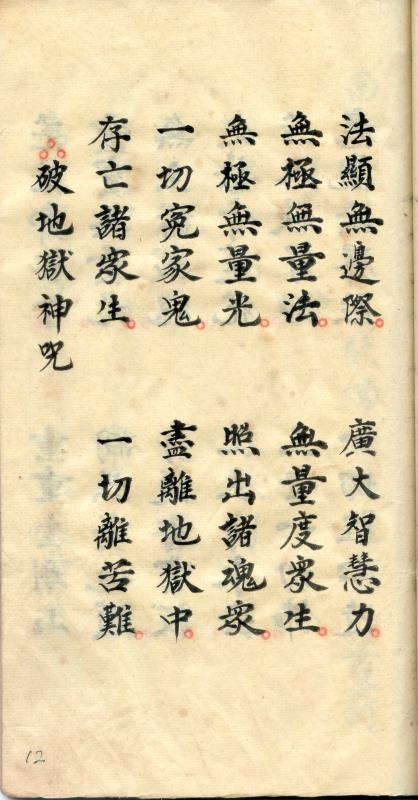 法顯無邊際。 廣大智慧力。
無極無量法。 無量度眾生。
無極無量光。 照出諸魂眾。
一切冤家鬼。 盡離地獄中。
存亡諸眾生。 一切離苦難。
破地獄神咒
12